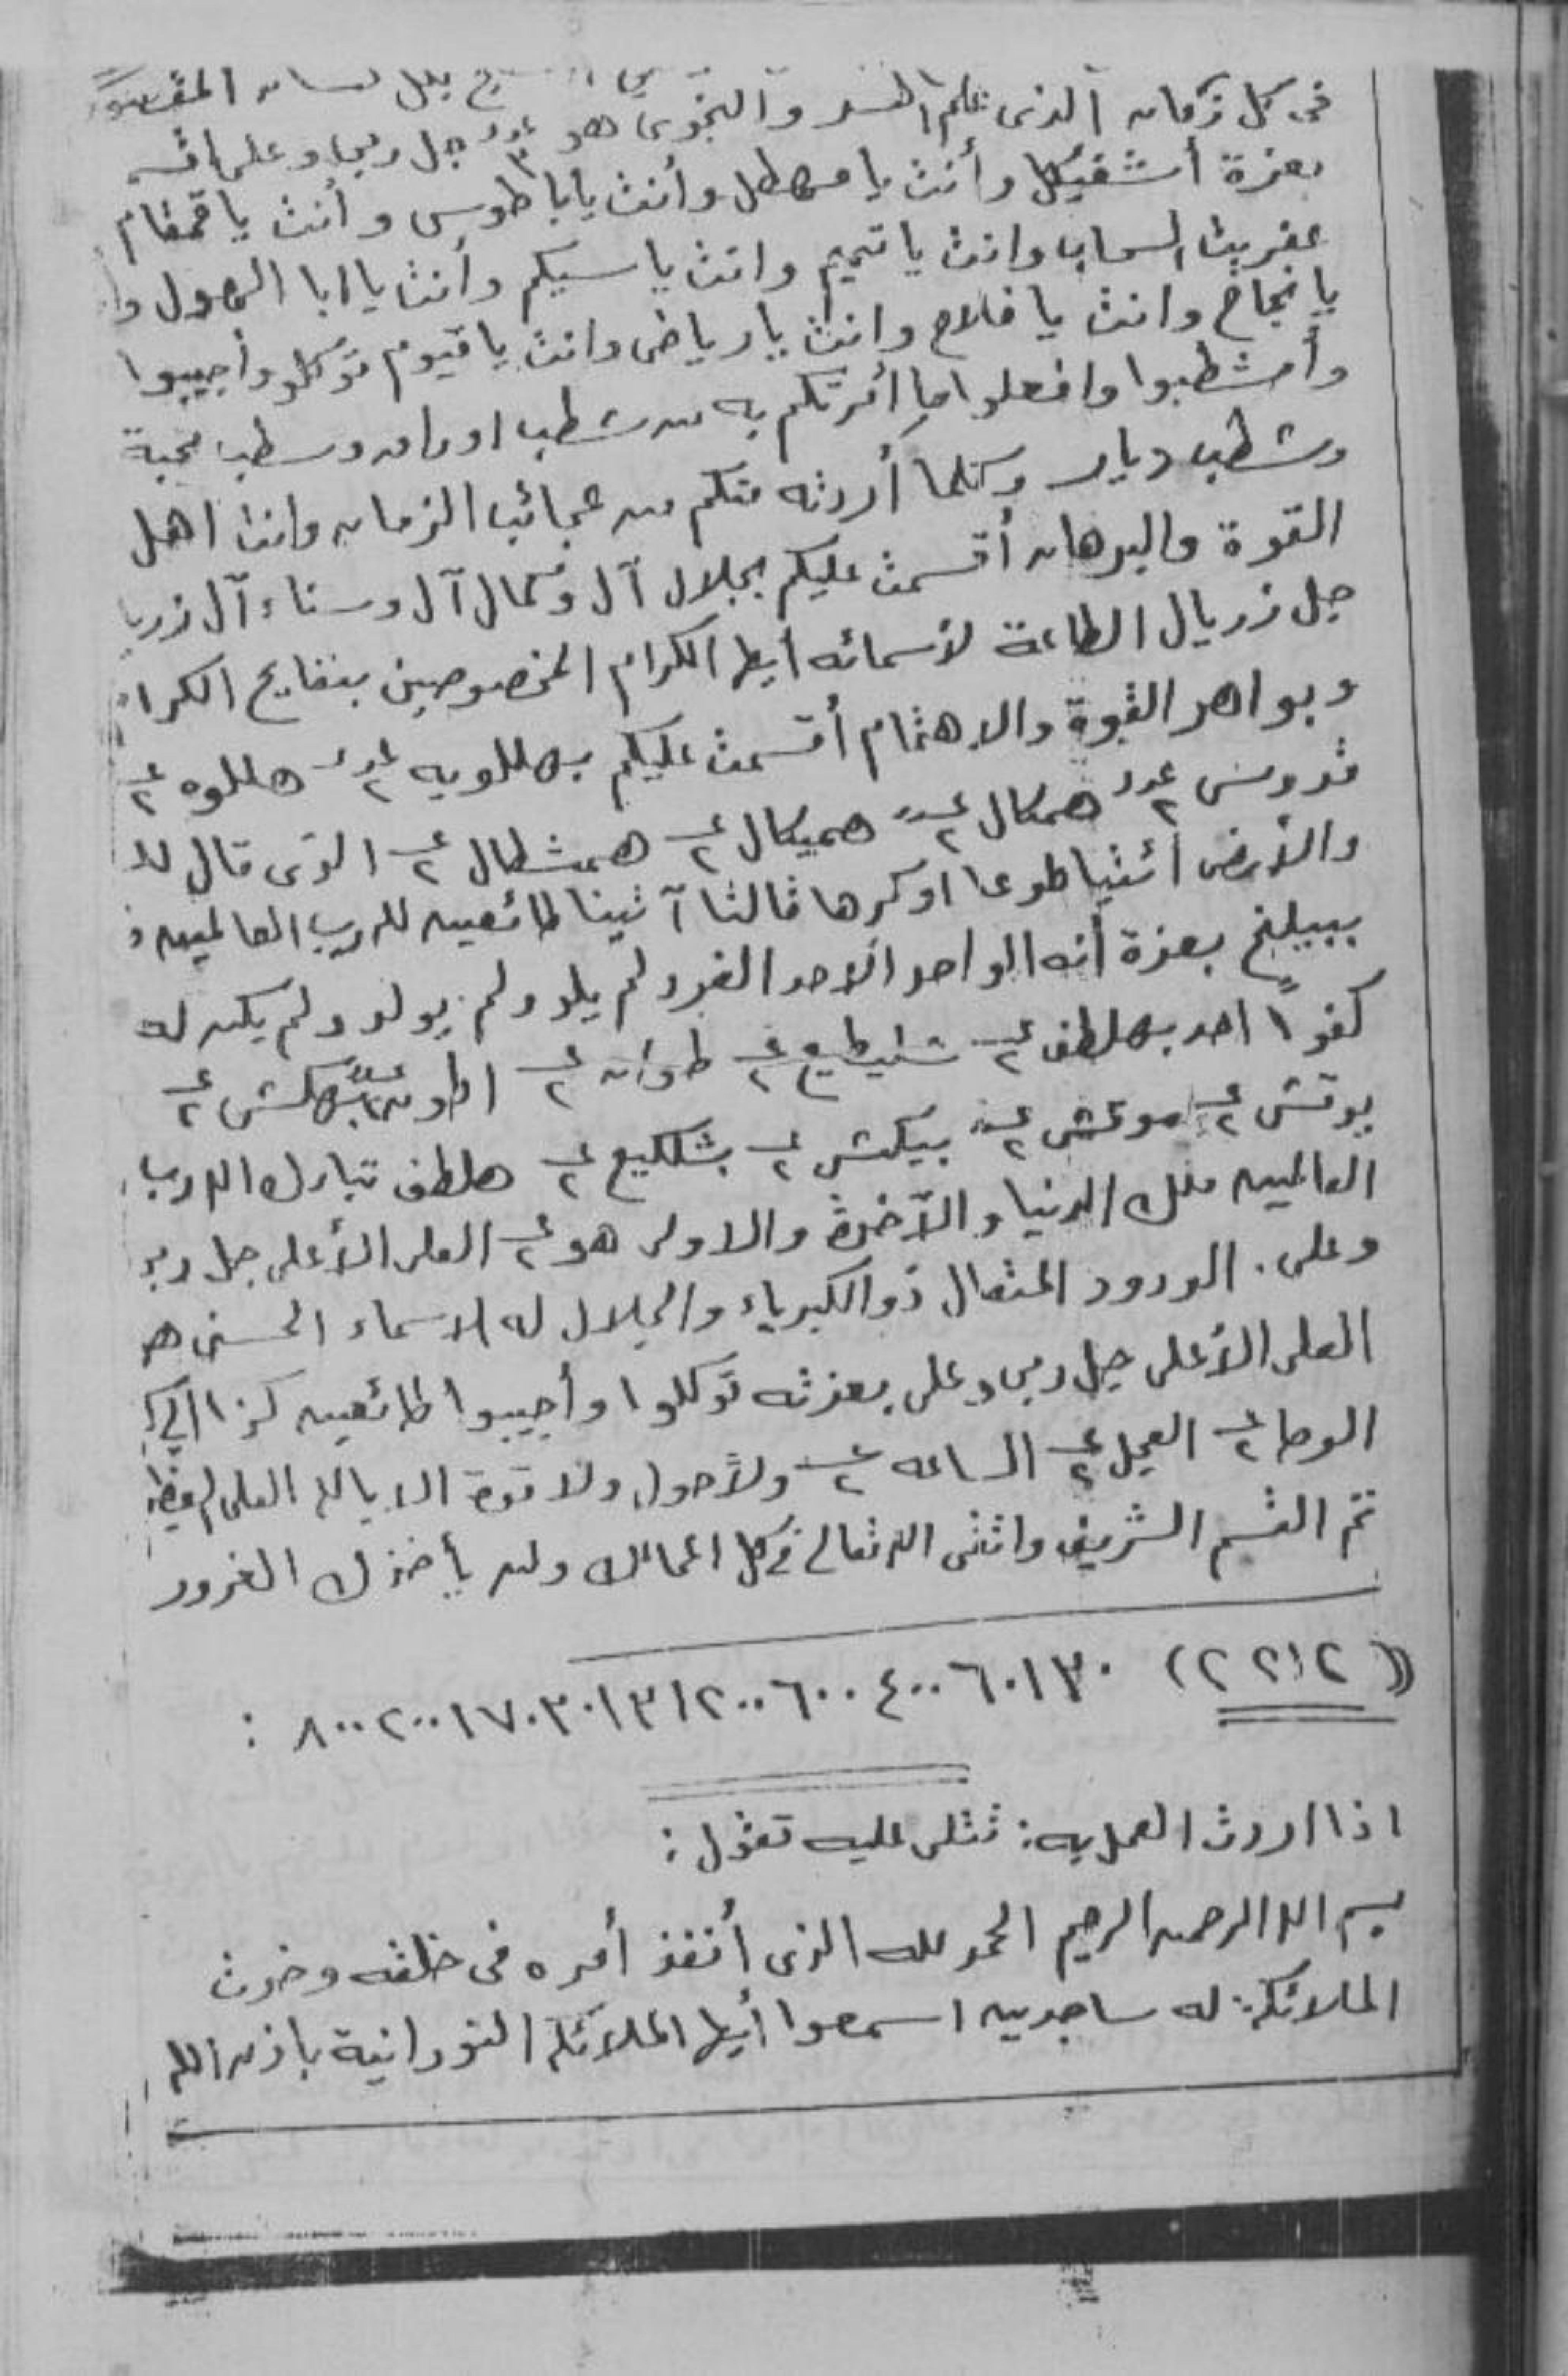 فى كل زمان الذى علم السر والنجوى هو عدد ٣ جل ربى وعلى
بعزة أشفيكل وأنت يا مهطل وأنت يا أبا طوس وأنت يا قمقام
عفريت السحاب وانت يا تميم وانت يا سيكم وأنت يا ابا الهول
يا نجاح وانت يا فلاح وانت يا رياض وانت يا قيوم توكلو وأجيبوا
وأمشطبوا وافعلوا ما أمرتكم به من شطب اوراق وسطب محبة
وشطب ديار وكلما أردته منكم من عجائب الزمان وانتا اهل
القوة والبرهان أقسمت عليكم بجلال آل وكمال آل وسناء آل زريا
جل زريال الطاعة لأسمائه أيها الكرام المخصوصين بنفايح الكرا
وبواهر القوة والاهتمام أقسمت عليكم بهللويه عدد ٢ هللوه ع ٢
قدوس عدد ٢ همكال ع ٢ هميكال ع ٢ همشطال ع ٢ الذى قال لل
والأرض أئتيا طوعا اوكرها قالتا آتينا طائعين لله رب العالمين
ببيلخ بعزة أنه الواحد الأحد الفرد لم يلد ولم يولد ولم يكن له
كفواً احد بهلطف ع ٢ شليطيع ع ٢ طوان ع ٢ اطون ع ٢ بهكش ع ٢
يوقش ع ٢ موعش ع ٢ بيكش ع ٢ بشلكيع ع ٢ هلطف تبارك الله رب
العالمين ملك الدنيا والآخرة والاولى هو ع ٢ العلى الأعلى جل ربى
وعلى. الودود المتعال ذو الكبرياء والجلال له الاسماء الحسنى هو
العلى الأعلى جل ربى وعلى بعزته توكلوا وأجيبوا طائعين كذا
الوحا ع ٢ العجل ع ٢ الساعه ع ٢ ولا حول ولا قوة الا بالله العلى العظيم
تم القسم الشريف واتقى الله تعالى فى كل اعمالك ولا يأخذك الغرور
((٢٢١٢) ٨٠٠٢٠٠١٧٠٣٠١٣١٢٠٠٦٠٠٤٠٠٦٠١٣٠ :
اذا اردت العمل به: تتلى عليه تقول:
بسم الله الرحمن الرحيم الحمد لله الذى أنفذ أمره فى خلقه وخرت
الملائكة له ساجدين اسمعوا أيها الملائكة النورانية باذن الله